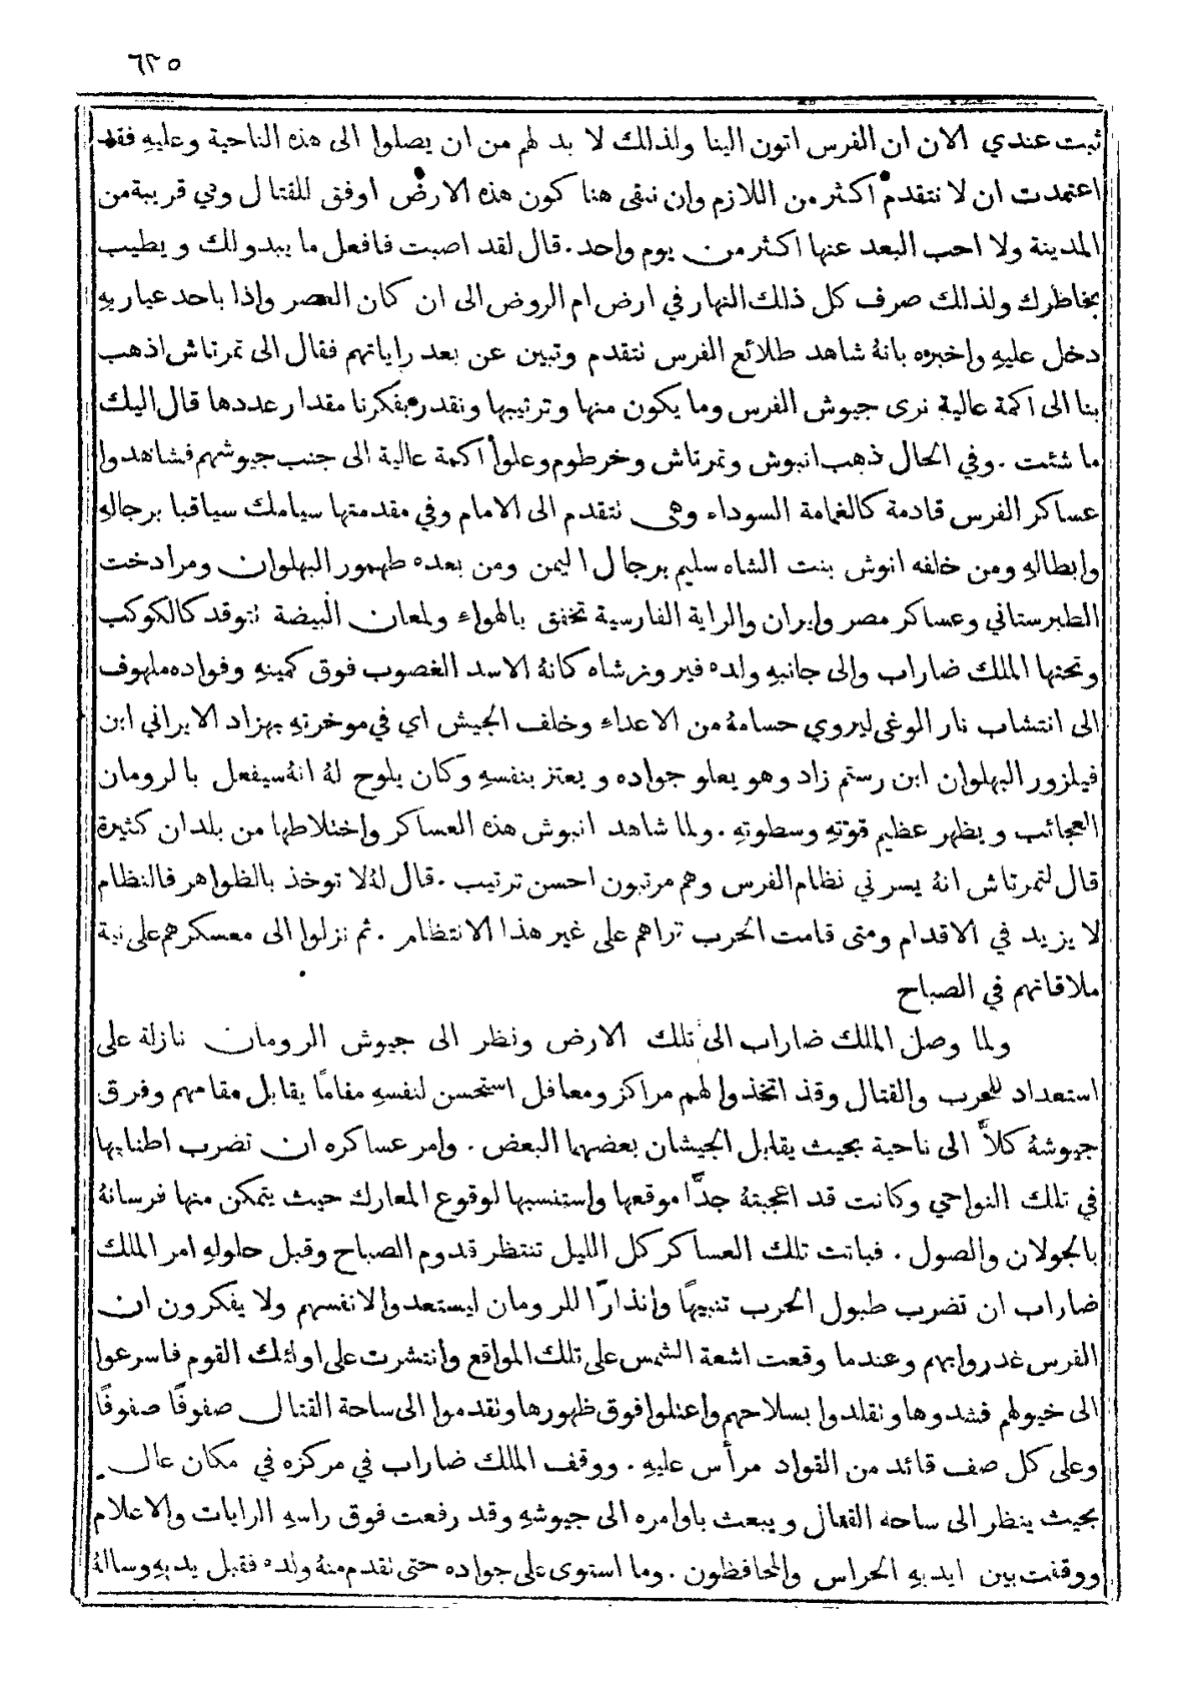 ٦٢٥
ثبت عندي الان ان الفرس اتون الينا ولذلك لا بد لهم من ان يصلوا الى هذه الناحية وعليهِ فقد
اعتمدت ان لا نتقدم اكثر من اللازم وان نبقى هنا كون هذه الارض اوفق للقتال وهي قريبة من
المدينة ولا احب البعد عنها اكثر من يوم واحد. قال لقد اصبت فافعل ما يبدو لك ويطيب
بخاطرك ولذلك صرف كل ذلك النهار في ارض ام الروض الى ان كان العصر واذا باحد عياريهِ
دخل عليهِ واخبره بانهُ شاهد طلائع الفرس تتقدم وتبين عن بعد راياتهم فقال الى تمرتاش اذهب
بنا الى اكمة عالية نرى جيوش الفرس وما يكون منها وترتيبها ونقدر بفكرنا مقدار عددها قال اليك
ما شئت . وفي الحال ذهب انبوش وتمرتاش وخرطوم وعلوا اكمة عالية الى جنب جيوشهم فشاهدوا
عساكر الفرس قادمة كالغمامة السوداء وهي تتقدم الى الامام وفي مقدمتها سيامك سياقبا برجالهِ
وابطالهِ ومن خلفه انوش بنت الشاه سليم برجال اليمن ومن بعده طهمور البهلوان ومرادخت
الطبرستاني وعساكر مصر وايران والراية الفارسية تخفق بالهواء ولمعان البيضة تتوقد كالكوكب
وتحتها الملك ضاراب والى جانبهِ ولده فيروزشاه كانهُ الاسد الغصوب فوق كمينهِ وفواده ملهوف
الى انتشاب نار الوغى ليروي حسامهُ من الاعداء وخلف الجيش اي في موخرتهِ بهزاد الايراني ابن
فيلزور البهلوان ابن رستم زاد وهو يعلو جواده ويعتز بنفسهِ وكان يلوح لهُ انهُ سيفعل بالرومان
العجائب ويظهر عظيم قوتهِ وسطوتهِ . ولما شاهد انبوش هذه العساكر واختلاطها من بلدان كثيرة
قال لتمرتاش انهُ يسرني نظام الفرس وهم مرتبون احسن ترتيب . قال لهُ لا توخذ بالظواهر فالنظام
لا يزيد في الاقدام ومتى قامت الحرب تراهم على غير هذا الانتظام . ثم نزلوا الى معسكرهم على نية
ملاقاتهم في الصباح
ولما وصل الملك ضاراب الى تلك الارض ونظر الى جيوش الرومان نازلة على
استعداد للحرب والقتال وقد اتخذوا لهم مراكز ومعاقل استحسن لنفسهِ مقامًا يقابل مقامهم وفرق
جيوشهُ كلاًّ الى ناحية بحيث يقابل الجيشان بعضهما البعض . وامر عساكره ان تضرب اطنابها
في تلك النواحي وكانت قد اعجبتهُ جدًّا موقعها واستنسبها لوقوع المعارك حيث يتمكن منها فرسانهُ
بالجولان والصول . فباتت تلك العساكر كل الليل تنتظر قدوم الصباح وقبل حلولهِ امر الملك
ضاراب ان تضرب طبول الحرب تنبيهًا وانذارًا للرومان ليستعدوا لانفسهم ولا يفكرون ان
الفرس غدروا بهم وعندما وقعت اشعة الشمس على تلك المواقع وانتشرت على اولئك القوم فاسرعوا
الى خيولهم فشدوها وتقلدوا بسلاحهم واعتلوا فوق ظهورها وتقدموا الى ساحة القتال صفوفًا صفوفًا
وعلى كل صف قائد من القواد مرأس عليهِ . ووقف الملك ضاراب في مركزه في مكان عال
بحيث ينظر الى ساحه القتال ويبعث باوامره الى جيوشهِ وقد رفعت فوق راسهِ الرايات والاعلام
ووقفت بين ايديهِ الحراس والمحافظون . وما استوى على جواده حتى تقدم منهُ ولده فقبل يديهِ وسالهُ